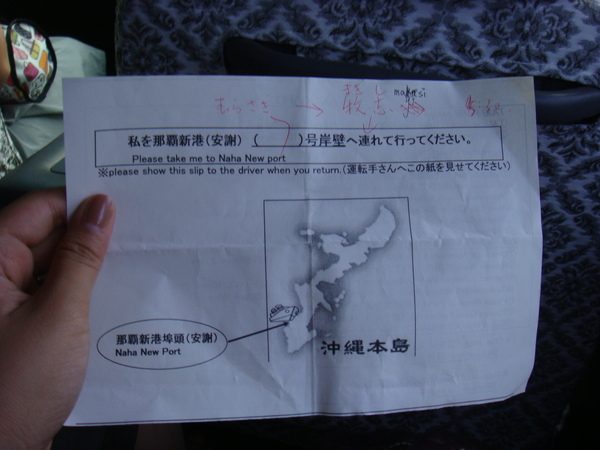 むらさき →
私を那覇新港(安謝) ( 7 )号岸壁へ連れて行ってください。
Please take me to Naha New port
※please show this slip to the driver when you return.(運転手さんへこの紙を見せてください)
那覇新港埠頭(安謝)
Naha New Port
沖縄本島